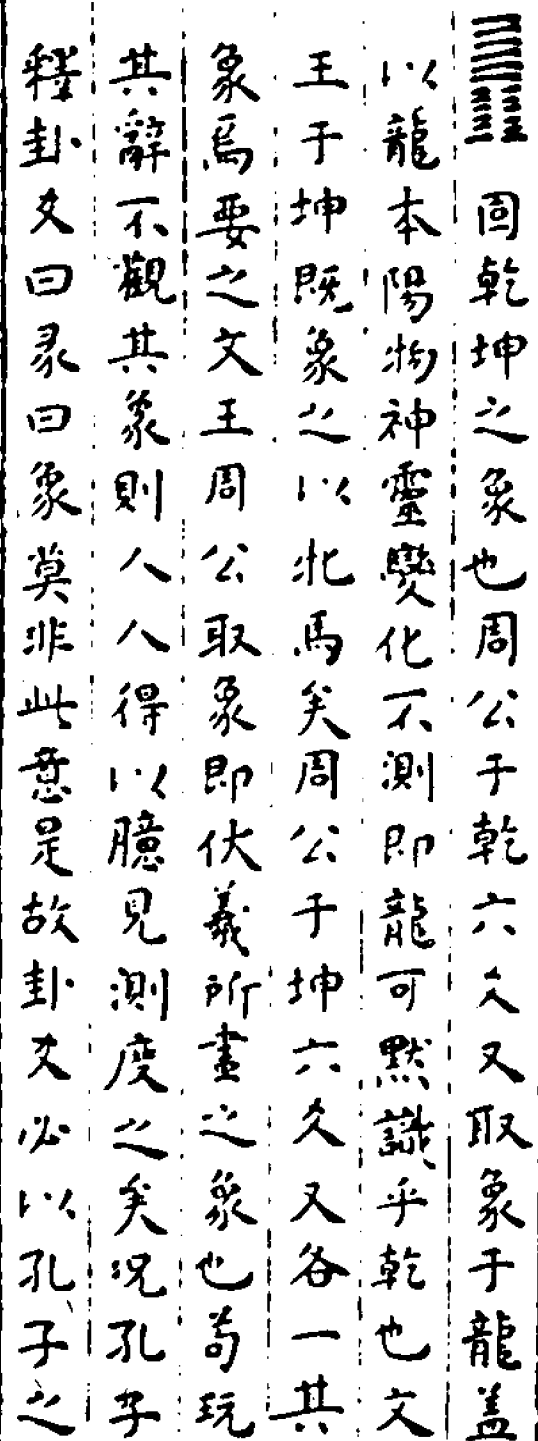 ䷀䷁固乾坤之象也周公于乾六爻又取象于龍蓋
以龍本陽物神靈變化不測即龍可默識乎乾也文
王于坤既象之以牝馬矣周公于坤六爻又各一其
象焉要之文王周公取象即伏羲所畫之象也苟玩
其辭不觀其象則人人得以臆見測度之矣況孔子
釋卦爻曰彖曰象莫非此意是故卦爻必以孔子之